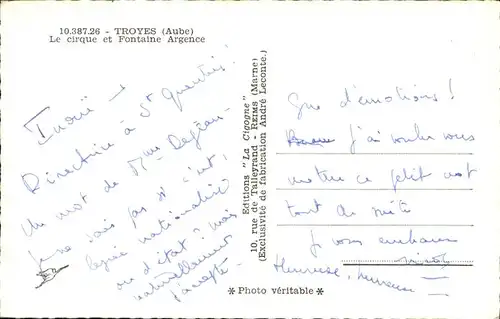 10.387.26 - TROYES (Aube)
Le cirque et Fontaine Argence
Directrice à St Quentin!
Un mot de Mme
je ne sais pas si c'est
lycée nationalisé
ou d'état? mais
naturellement
j'accepte
Editions "La Cigogne"
10, rue de Talleyrand - REIMS (Marne)
(Exclusivité de fabrication André Leconte.)
✻ Photo véritable ✻
Que d'émotions!
j'ai voulu vous
mettre ce petit mot
tout de suite
Je vous embrasse
Heureuse, heureuse